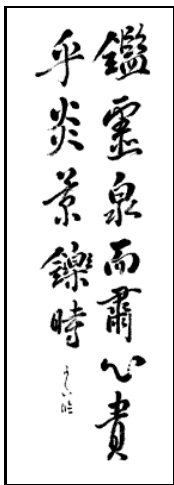 鑑霊泉而肅心貴
乎炎景鑠時